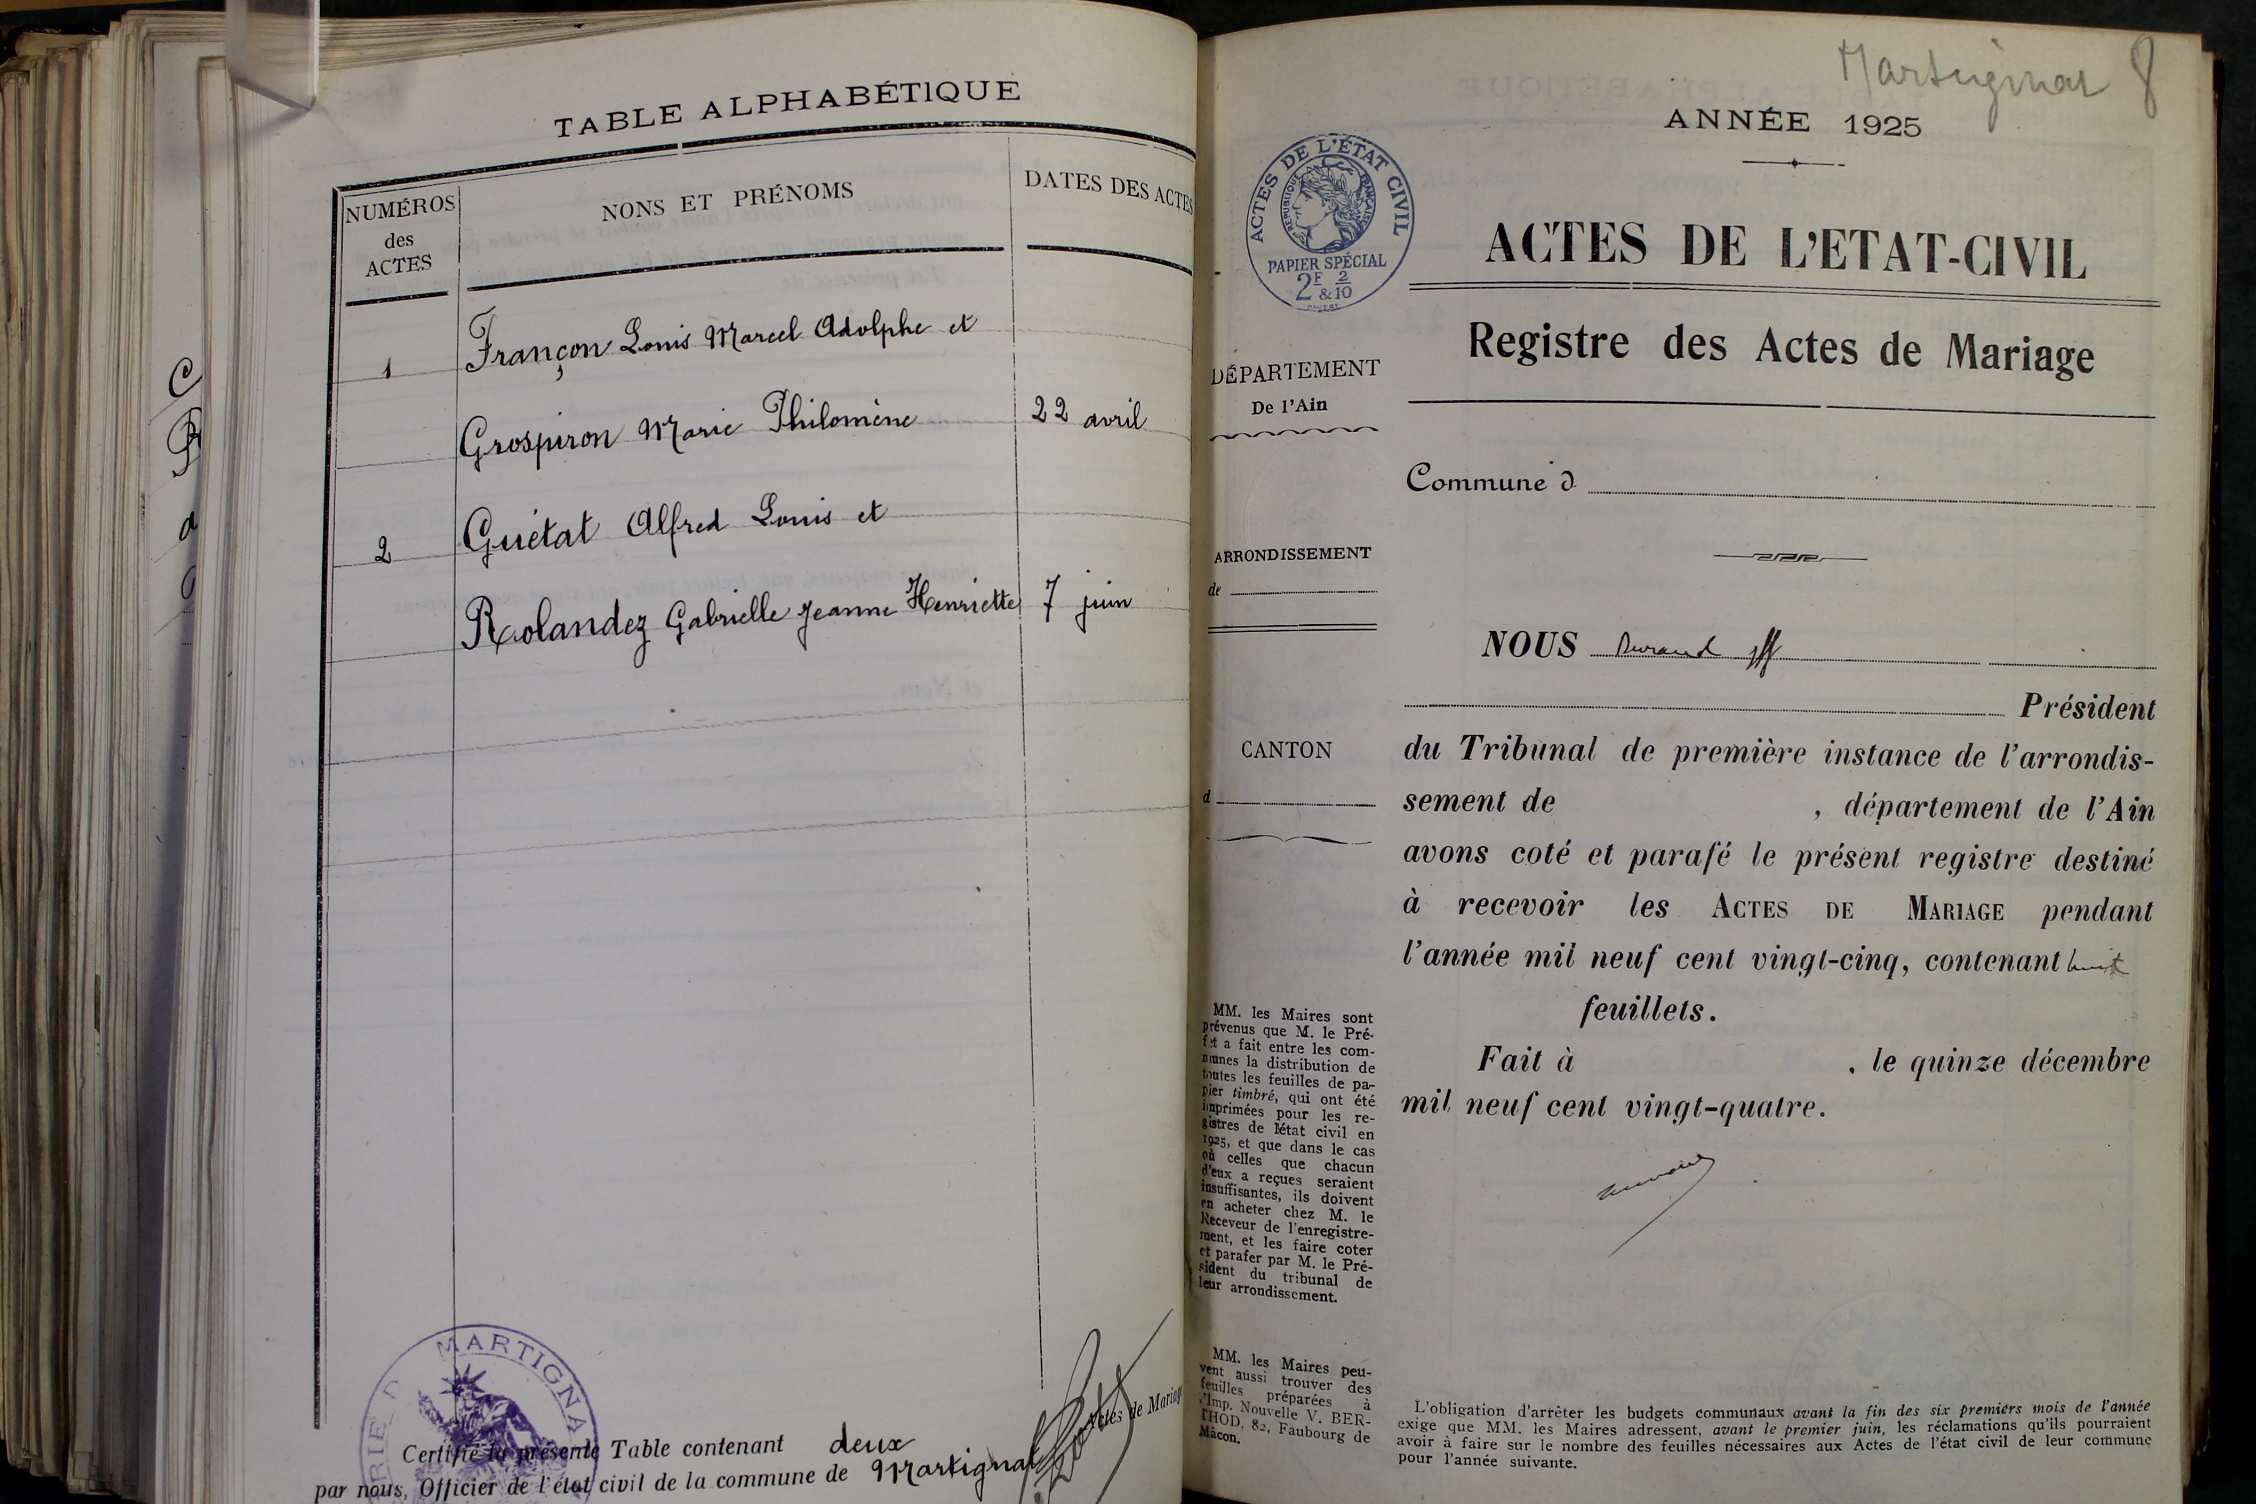 TABLE ALPHABÉTIQUE
NUMÉROS
des
ACTES
NONS ET PRÉNOMS
DATES DES ACTES
1
Françon Louis Marcel Adolphe et
Grospiron Marie Philomène
22 avril
2
Guétat Alfred Louis et
Rolandez Gabrielle Jeanne Henriette
7 juin
MARTIGNA
Certifié la présente Table contenant deux Actes de Mariage
par nous, Officier de l'état civil de la commune de Martignat
Martignat 8
ANNÉE 1925
ACTES DE L'ÉTAT CIVIL
RÉPUBLIQUE FRANÇAISE
PAPIER SPÉCIAL
2F & 2/10
ACTES DE L'ETAT-CIVIL
Registre des Actes de Mariage
DÉPARTEMENT
De l'Ain
Commune d
ARRONDISSEMENT
de
NOUS Durand
Président
CANTON
d
du Tribunal de première instance de l'arrondis-
sement de , département de l'Ain
avons coté et parafé le présent registre destiné
à recevoir les ACTES DE MARIAGE pendant
l'année mil neuf cent vingt-cinq, contenant huit
feuillets.
Fait à , le quinze décembre
mil neuf cent vingt-quatre.
MM. les Maires sont
prévenus que M. le Pré-
fet a fait entre les com-
munes la distribution de
toutes les feuilles de pa-
pier timbré, qui ont été
imprimées pour les re-
gistres de l'état civil en
1925, et que dans le cas
où celles que chacun
d'eux a reçues seraient
insuffisantes, ils doivent
en acheter chez M. le
Receveur de l'enregistre-
ment, et les faire coter
et parafer par M. le Pré-
sident du tribunal de
leur arrondissement.
MM. les Maires peu-
vent aussi trouver des
feuilles préparées à
l'Imp. Nouvelle V. BER-
THOD, 82, Faubourg de
Mâcon.
L'obligation d'arrêter les budgets communaux avant la fin des six premiers mois de l'année
exige que MM. les Maires adressent, avant le premier juin, les réclamations qu'ils pourraient
avoir à faire sur le nombre des feuilles nécessaires aux Actes de l'état civil de leur commune
pour l'année suivante.